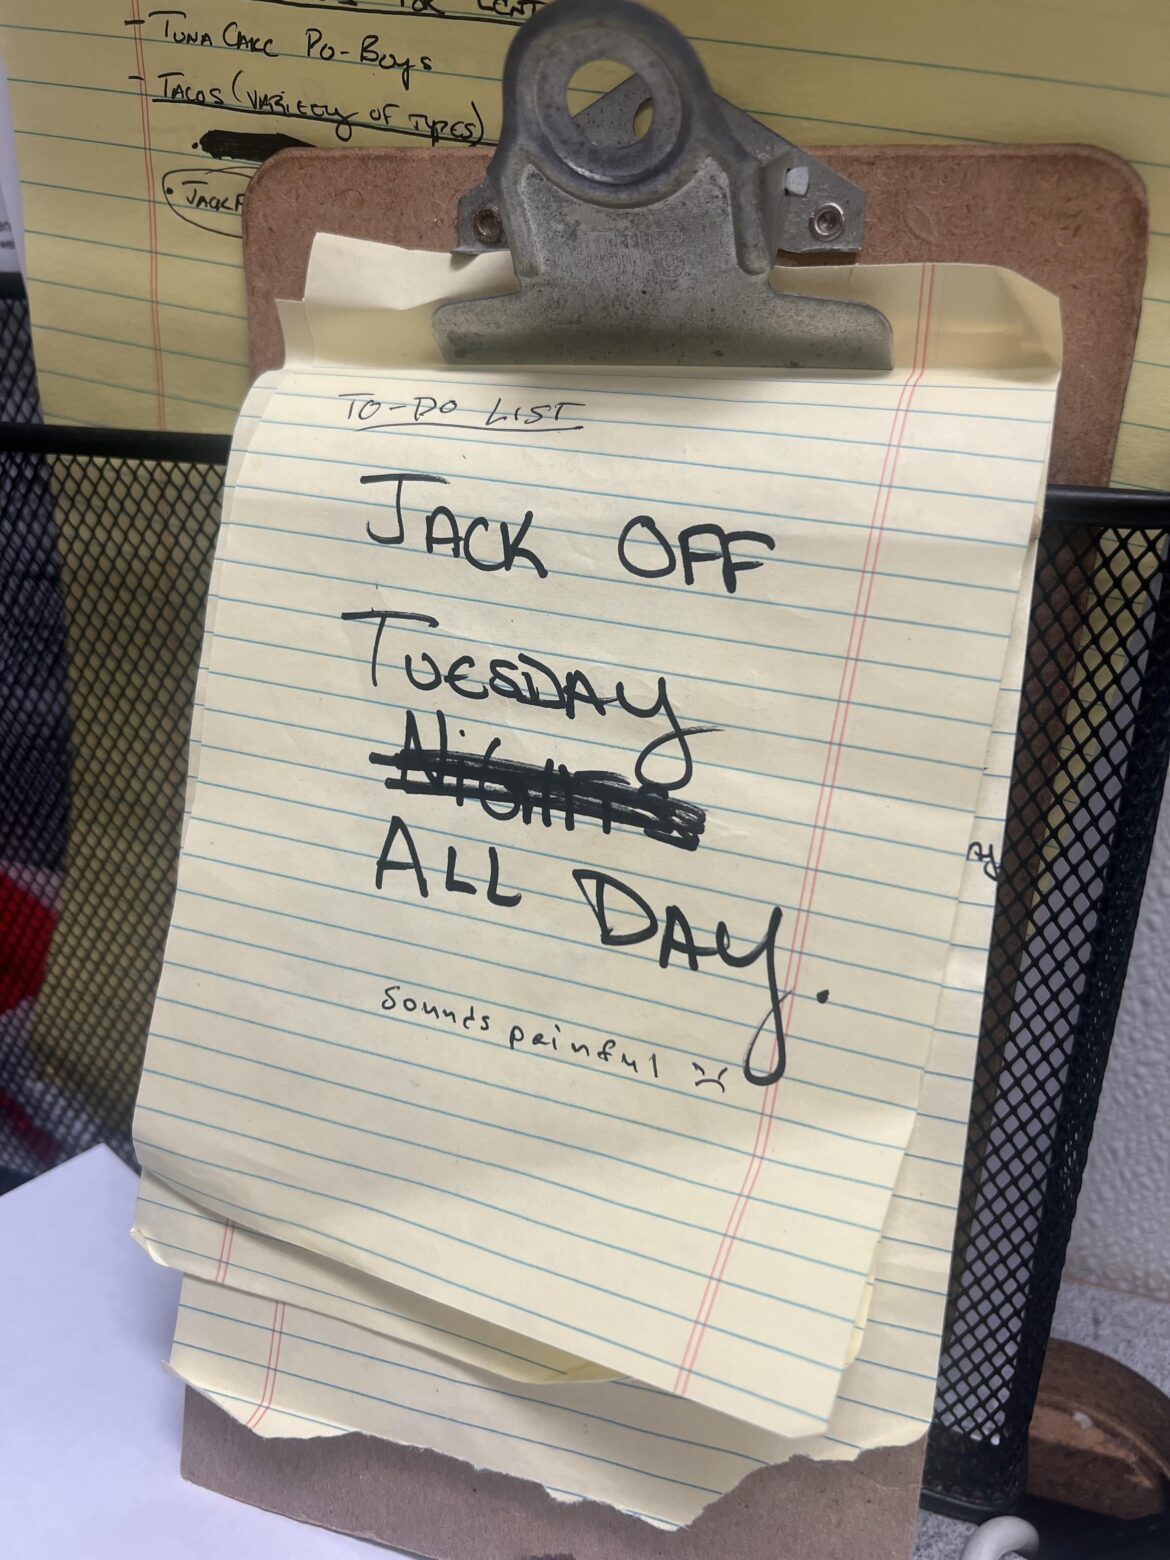 - TUNA CAKE PO-BOYS
- TACOS (VARIETY OF TYPES)
TO-DO LIST
JACK OFF
TUESDAY
NIGHTS
ALL DAY.
sounds painful